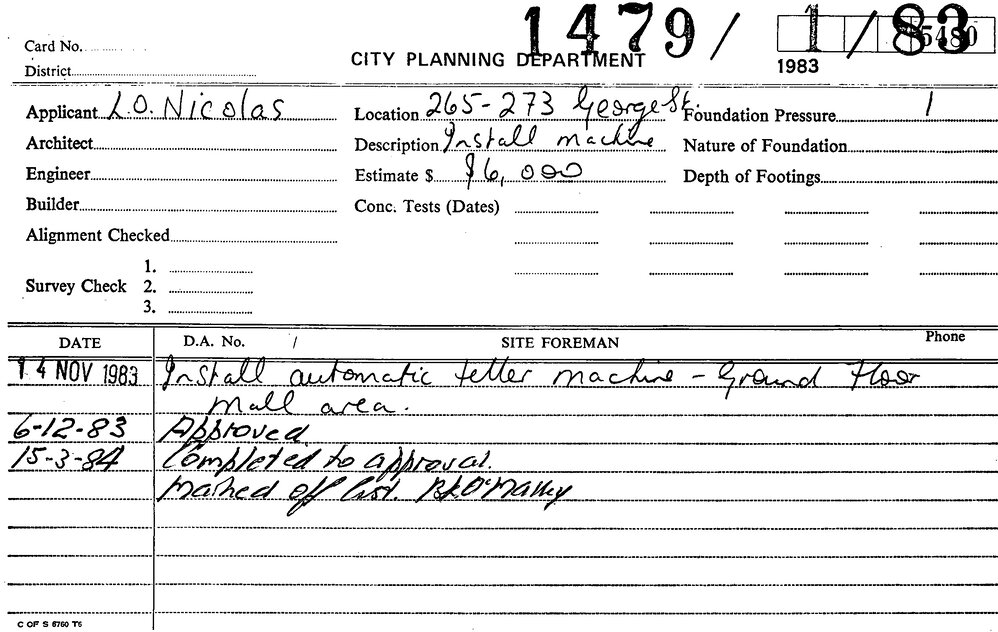 1479 / 1 / 83
5480
Card No.
CITY PLANNING DEPARTMENT
1983
District
Applicant L.O. Nicolas
Location 265-273 George St.
Foundation Pressure 1
Architect
Description Install machine
Nature of Foundation
Engineer
Estimate $ $6,000
Depth of Footings
Builder
Conc. Tests (Dates)
Alignment Checked
1.
Survey Check 2.
3.
DATE D.A. No. / SITE FOREMAN Phone
14 NOV 1983 Install automatic teller machine - Ground Floor
Mall area.
6-12-83 Approved
15-3-84 Completed to approval.
Marked off list. B.J. O'Malley
C OF S 6760 T6